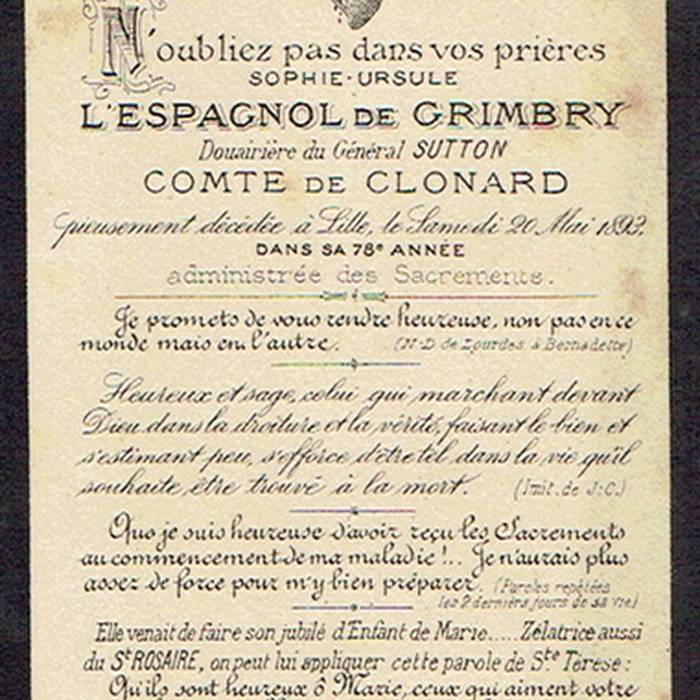 N'oubliez pas dans vos prières
SOPHIE-URSULE
L'ESPAGNOL DE GRIMBRY
Douairière du Général SUTTON
COMTE DE CLONARD
pieusement décédée à Lille, le Samedi 20 Mai 1893,
DANS SA 78e ANNÉE
administrée des Sacrements.
Je promets de vous rendre heureuse, non pas en ce
monde mais en l'autre. (N-D de Lourdes à Bernadette)
Heureux et sage, celui qui marchant devant
Dieu dans la droiture et la vérité, faisant le bien et
s'estimant peu, s'efforce d'être tel dans la vie qu'il
souhaite être trouvé à la mort. (Imit. de J-C.)
Que je suis heureuse d'avoir reçu les Sacrements
au commencement de ma maladie !.. Je n'aurais plus
assez de force pour m'y bien préparer. (Paroles répétées
les 2 derniers jours de sa vie)
Elle venait de faire son jubilé d'Enfant de Marie..... Zélatrice aussi
du St ROSAIRE, on peut lui appliquer cette parole de Ste Térèse :
Qu'ils sont heureux ô Marie, ceux qui aiment votre